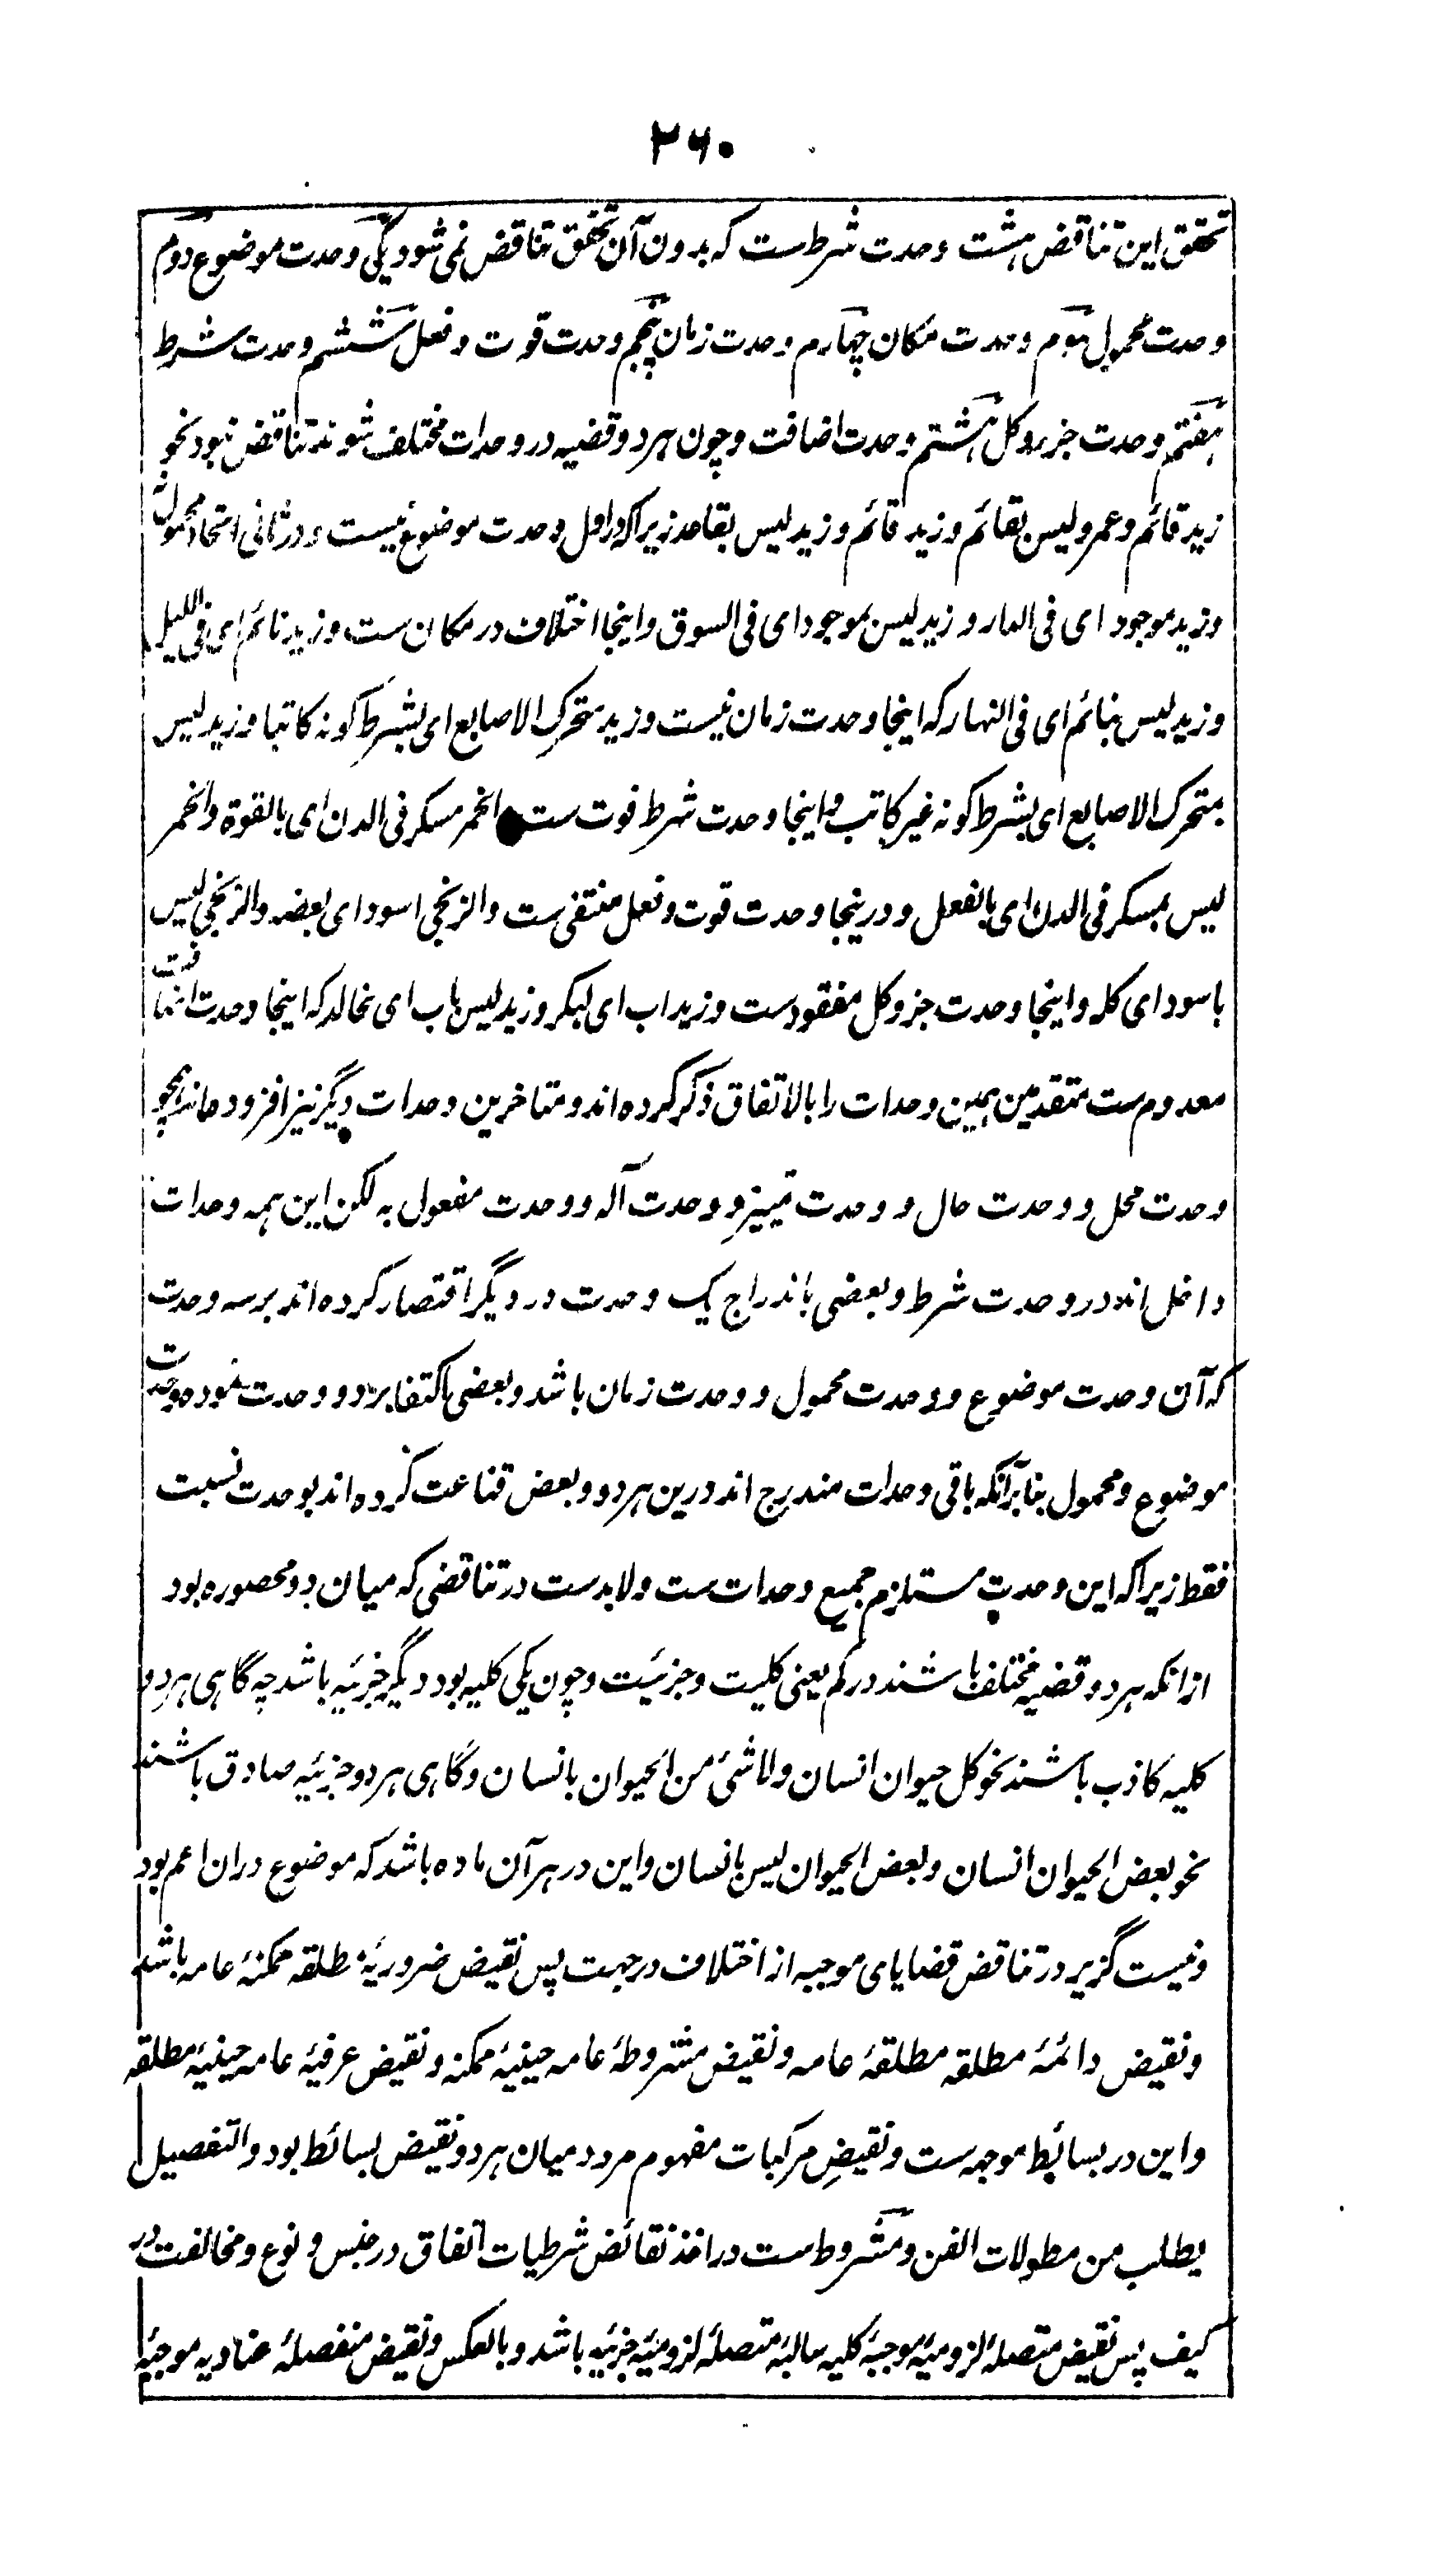 ۲۶۰
تحقق این تناقض هشت وحدت شرط ست که بدون آن تحقق تناقض نمی شود یکی وحدت موضوع دوم
وحدت محمول سوم وحدت مکان چهارم وحدت زمان پنجم وحدت قوت و فعل ششم وحدت شرط
هفتم وحدت جزء و کل هشتم وحدت اضافت و چون هر دو قضیه در وحدات مختلف شوند تناقض نبود نحو
زید قائم و عمرو لیس بقائم و زید قائم و زید لیس بقاعد زیرا که در اول وحدت موضوع نیست و در ثانی اتحاد محمول
و زید موجود ای فی الدار و زید لیس بموجود ای فی السوق و اینجا اختلاف در مکان ست و زید نائم ای فی اللیل
و زید لیس بنائم ای فی النهار که اینجا وحدت زمان نیست و زید متحرک الاصابع ای بشرط کونه کاتبا و زید لیس
بمتحرک الاصابع ای بشرط کونه غیر کاتب و اینجا وحدت شرط فوت ست الخمر مسکر فی الدن ای بالقوة والخمر
لیس بمسکر فی الدن ای بالفعل و درینجا وحدت قوت و فعل منتفی ست والزنجی اسود ای بعضه والزنجی لیس
باسود ای کله و اینجا وحدت جز و کل مفقود ست و زید اب ای لبکر و زید لیس باب ای لخالد که اینجا وحدت اضافت
معدوم ست متقدمین همین وحدات را بالاتفاق ذکر کرده اند و متاخرین وحدات دیگر نیز افزوده اند همچو
وحدت محل و وحدت حال و وحدت تمییز و وحدت آله و وحدت مفعول به لکن این همه وحدات
داخل اند در وحدت شرط و بعضی باندراج یک وحدت در دیگر اقتصار کرده اند بر سه وحدت
که آن وحدت موضوع و وحدت محمول و وحدت زمان باشد و بعضی اکتفا بر دو وحدت نموده وحدت
موضوع و محمول بنا بر آنکه باقی وحدات مندرج اند درین هر دو و بعض قناعت کرده اند بوحدت نسبت
فقط زیرا که این وحدت مستلزم جمیع وحدات ست ولابد ست در تناقضی که میان دو محصوره بود
از انکه هر دو قضیه مختلف باشند در کم یعنی کلیت و جزئیت و چون یکی کلیه بود دیگر جزئیه باشد چه گاهی هر دو
کلیه کاذب باشند نحو کل حیوان انسان ولا شئ من الحیوان بانسان و گاهی هر دو جزئیه صادق باشند
نحو بعض الحیوان انسان و بعض الحیوان لیس بانسان و این در هر آن ماده باشد که موضوع دران اعم بود
و نیست گزیر در تناقض قضایای موجهه از اختلاف در جهت پس نقیض ضروریۂ مطلقه ممکنۂ عامه باشد
و نقیض دائمۂ مطلقه مطلقۂ عامه و نقیض مشروطۂ عامه حینیۂ ممکنه و نقیض عرفیۂ عامه حینیۂ مطلقه
و این در بسائط موجهه ست و نقیض مرکبات مفهوم مردد میان هر دو نقیض بسائط بود والتفصیل
یطلب من مطولات الفن و مشروط ست در اخذ نقائض شرطیات اتفاق در جنس و نوع و مخالفت در
کیف پس نقیض متصلۂ لزومیۂ موجبۂ کلیه سالبۂ متصلۂ لزومیۂ جزئیه باشد و بالعکس و نقیض منفصلۂ عنادیه موجبۂ